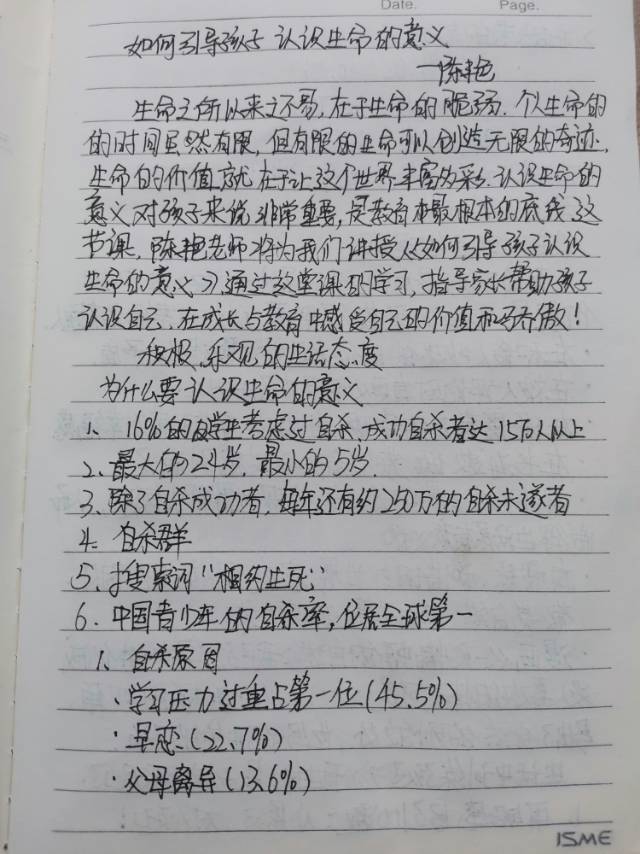 Date.
Page.
如何引导孩子认识生命的意义
—陈艳
生命之所以来之不易,在于生命的脆弱.个人生命的
的时间虽然有限,但有限的生命可以创造无限的奇迹.
生命的价值就在于让这个世界丰富多彩.认识生命的
意义对孩子来说非常重要,是教育本最根本的底线这
节课,陈艳老师将为我们讲授《如何引导孩子认识
生命的意义》通过这堂课的学习,指导家长帮助孩子
认识自己,在成长与教育中感受自己的价值和骄傲!
积极、乐观的生活态度
为什么要认识生命的意义
1、16%的学生考虑过自杀,成功自杀者达15万人以上
2、最大的24岁,最小的5岁.
3、除了自杀成功者,每年还有约250万的自杀未遂者
4、自杀群
5、搜索词“相约生死”
6、中国青少年的自杀率,位居全球第一
1、自杀原因
·学习压力过重占第一位(45.5%)
·早恋(22.7%)
·父母离异(13.6%)
ISME